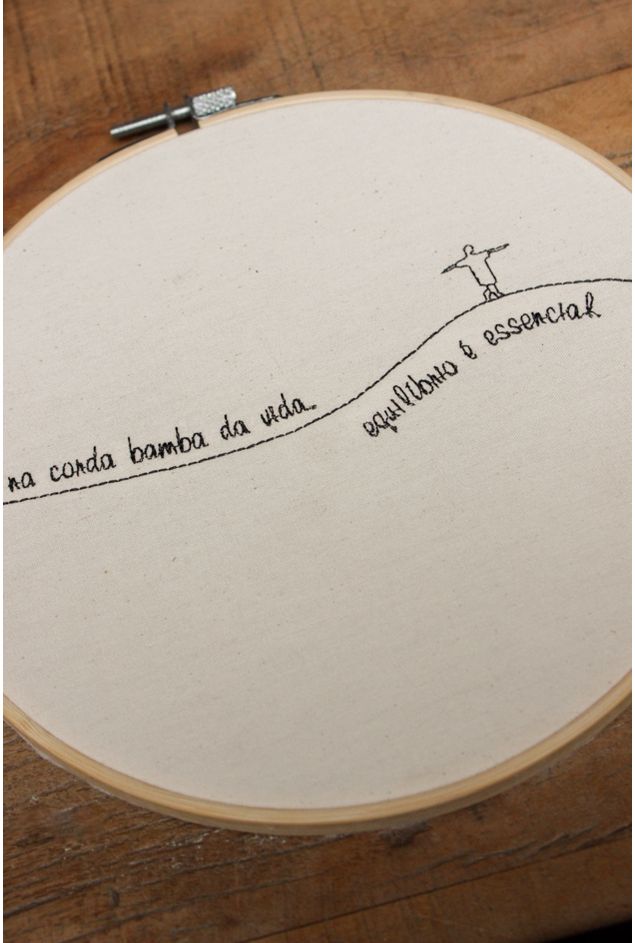 na corda bamba da vida
equilíbrio é essencial